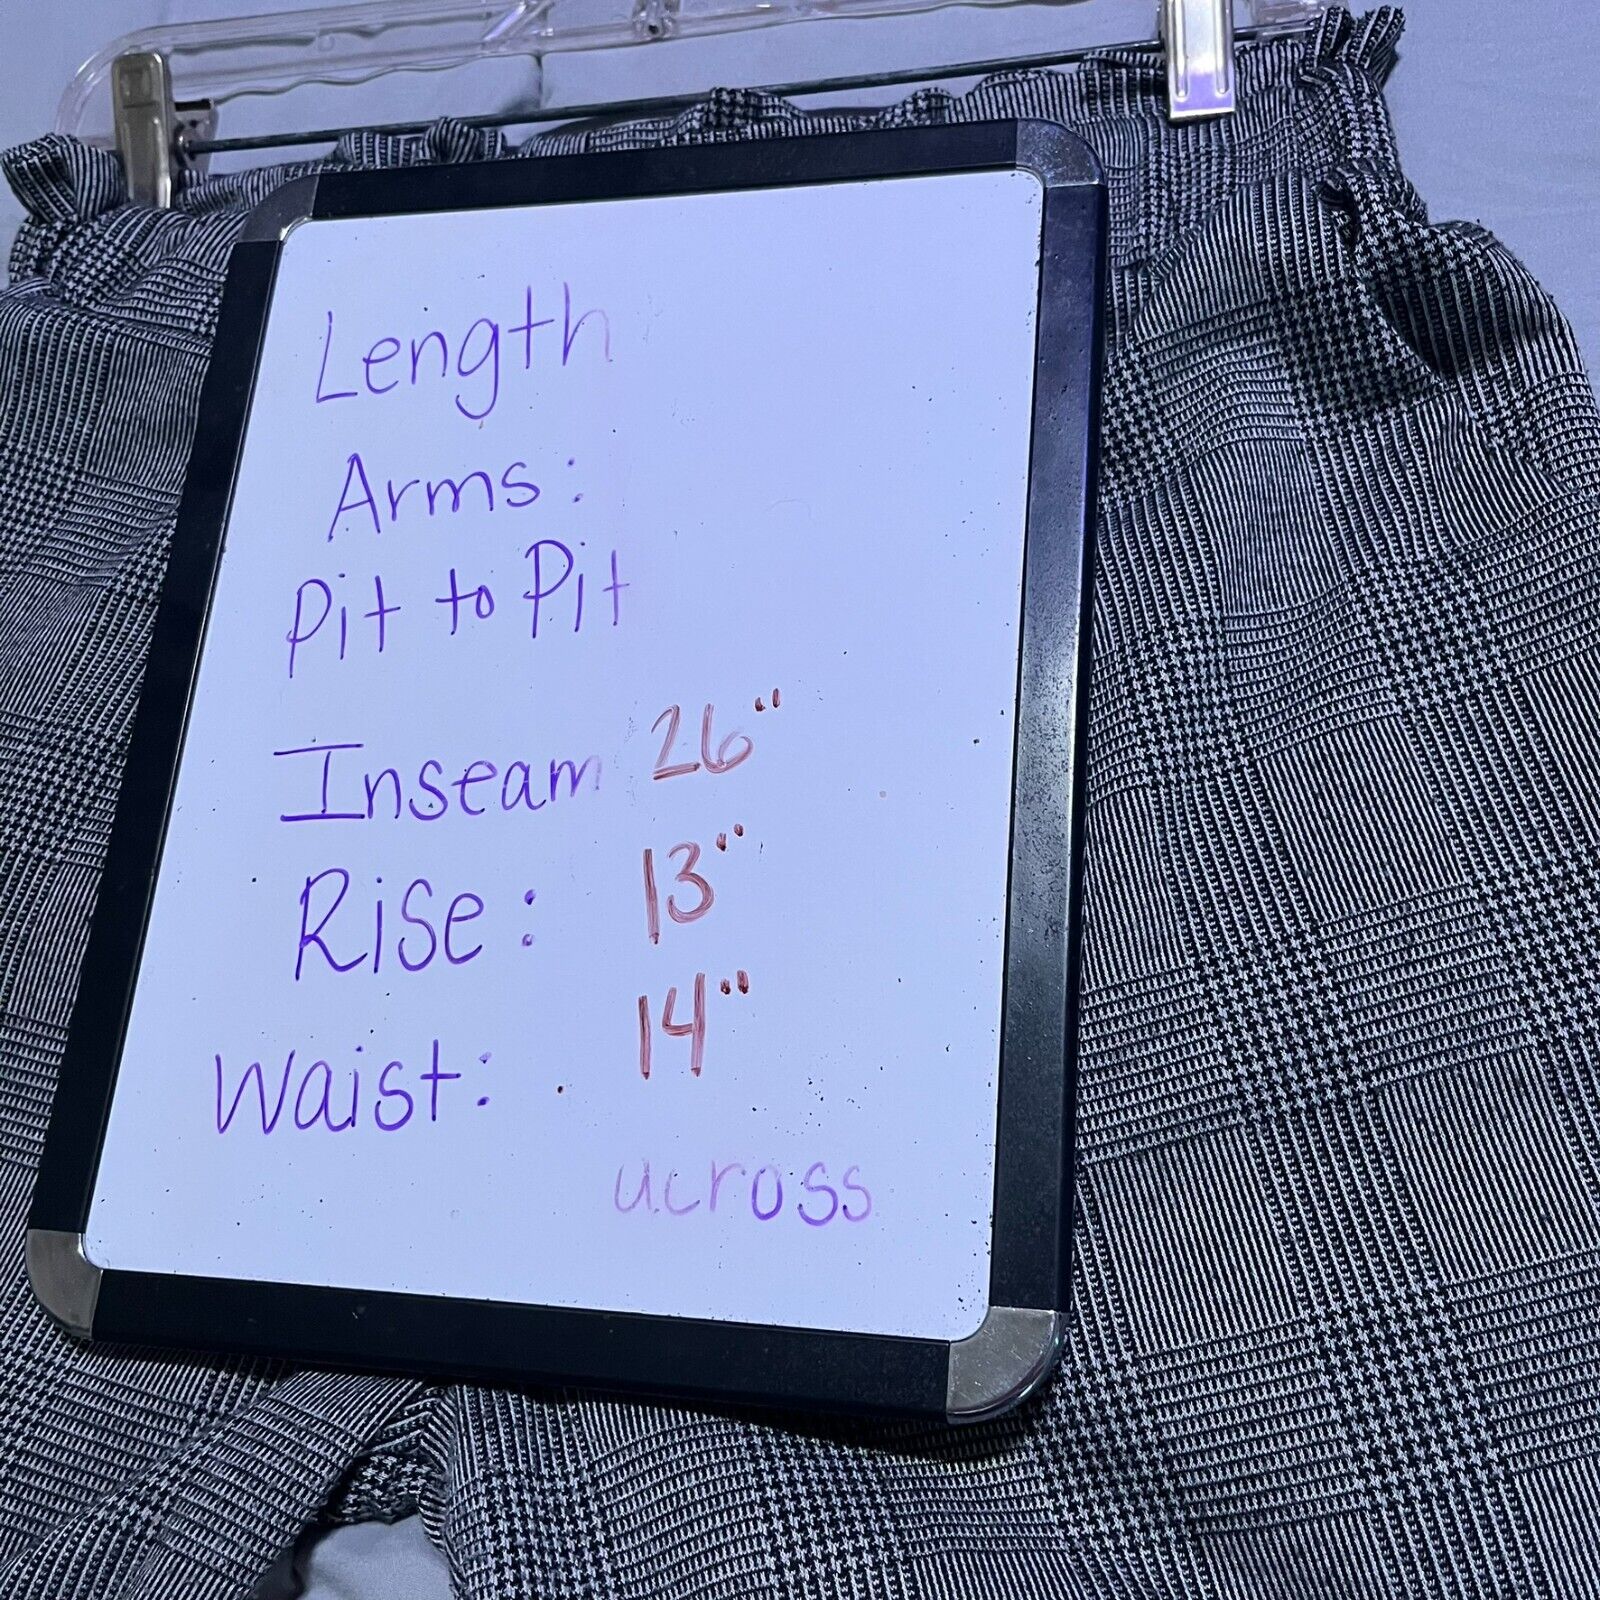 Length
Arms:
Pit to Pit
Inseam 26"
Rise: 13"
Waist: 14"
across